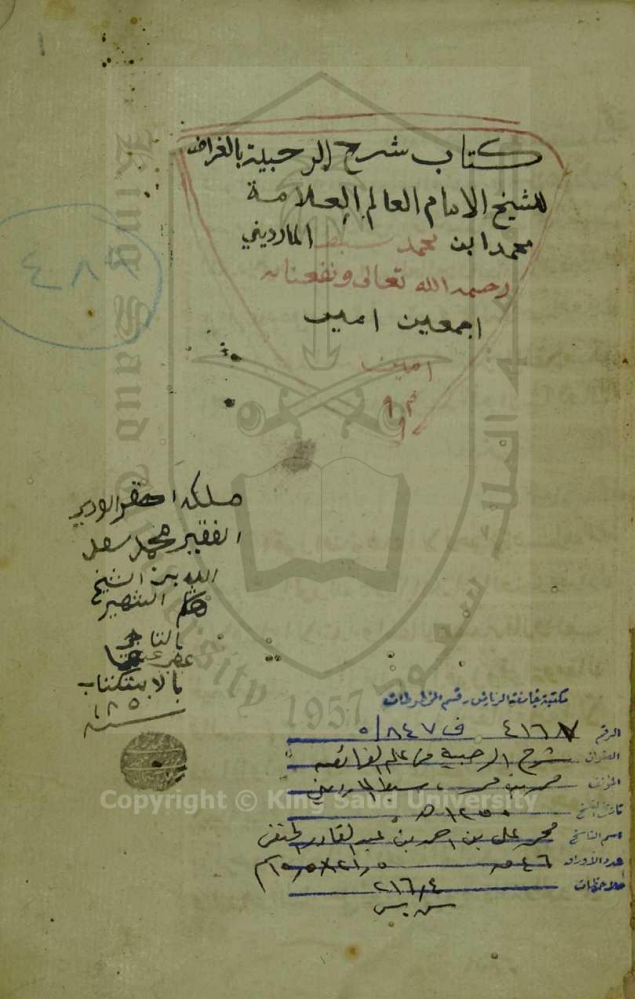 كتاب شرح الرحبية بالفرائض
للشيخ الامام العالم العلامة
محمد ابن محمد سبط المارديني
رحمه الله تعالى ونفعنا به
اجمعين امين
امين
م
ملكه احقر الورى
الفقير محمد سعد
الله بن الشيخ
الشهير
عفى عنهما
١٢٥
سنة
٤٨٧
مكتبة جامعة الرياض - قسم المخطوطات
الرقم ٤١٦٧ ف ٥/٨٤٧
العنوان شرح الرحبية في علم الفرائض
المؤلف محمد بن محمد، سبط المارديني
تاريخ النسخ ١٢٥٠ هـ
اسم الناسخ محمد علي بن احمد بن عبد القادر الحنفي
عدد الأوراق ٤٦ ق
ملاحظات ٢١٦٫٤
س.س
King Saud University
1957
Copyright © King Saud University